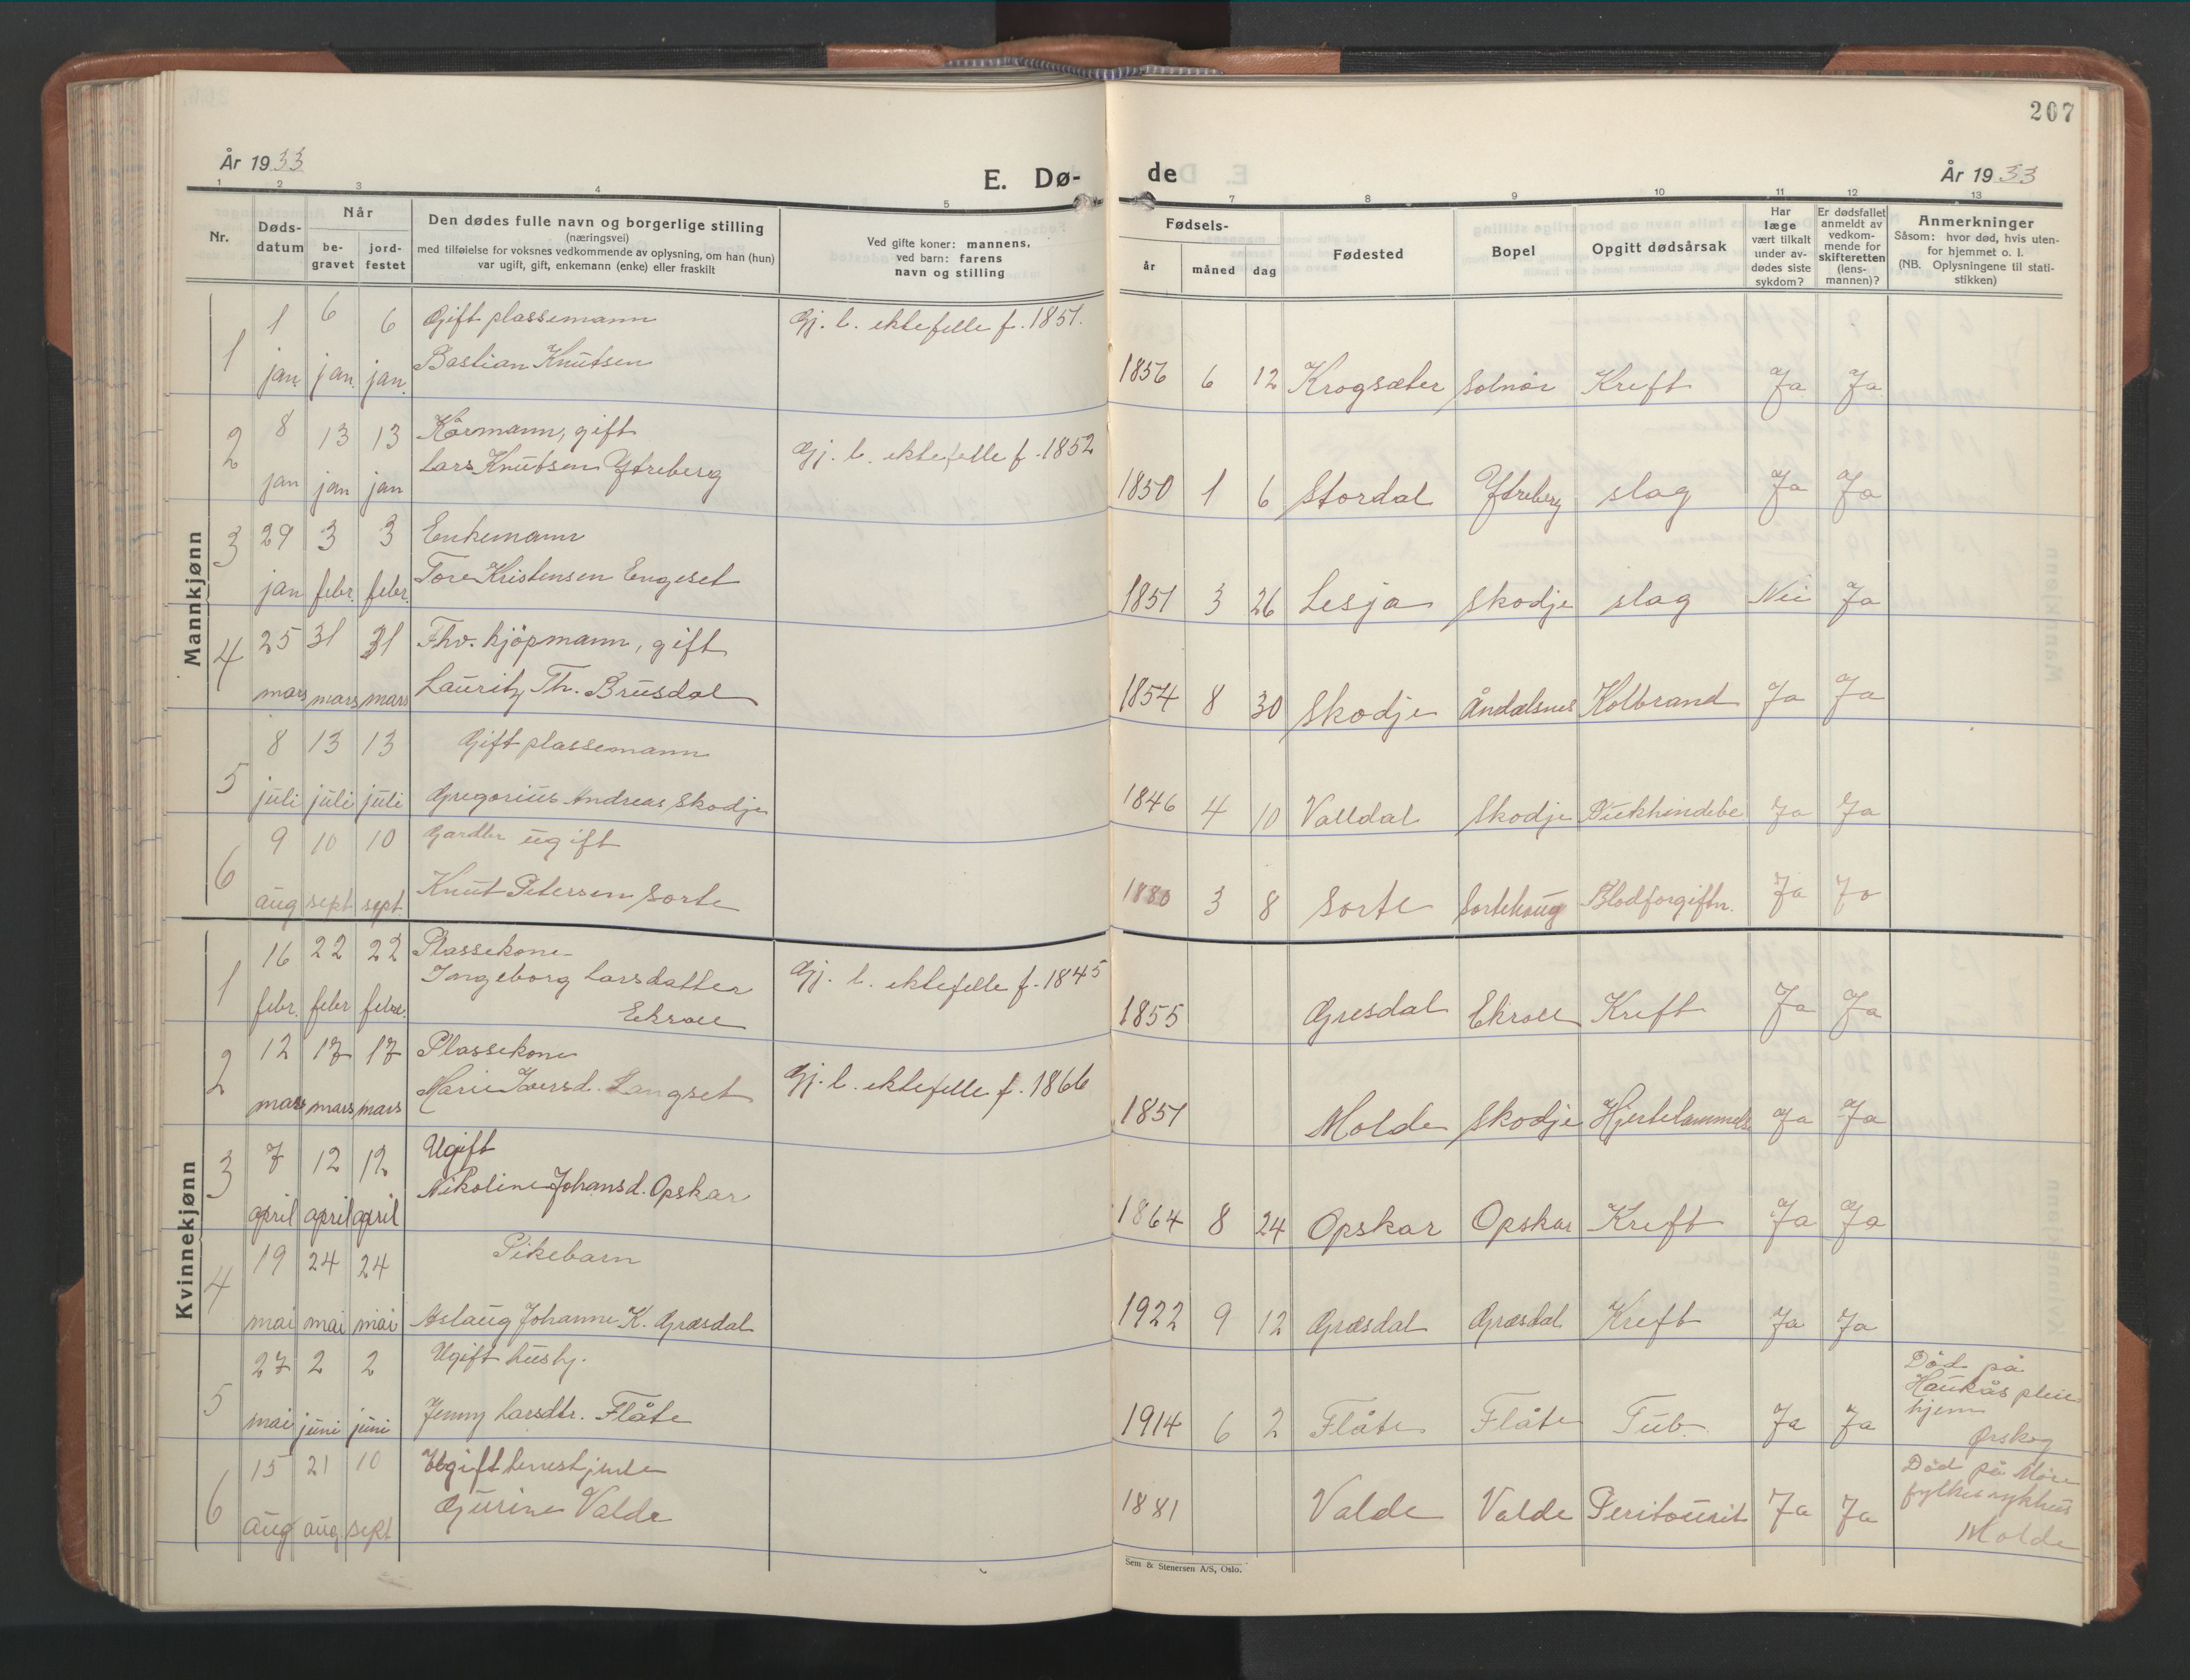 207
År 1933
E. Dø-
de
År 1933
1 2 3 4 5 7 8 9 10 11 12 13
Nr.
Døds-
datum
Når
be-
gravet
jord-
festet
Den dødes fulle navn og borgerlige stilling
(næringsvei)
med tilføielse for voksnes vedkommende av oplysning, om han (hun)
var ugift, gift, enkemann (enke) eller fraskilt
Ved gifte koner: mannens,
ved barn: farens
navn og stilling
Fødsels-
år
måned
dag
Fødested
Bopel
Opgitt dødsårsak
Har
læge
vært tilkalt
under av-
dødes siste
sykdom?
Er dødsfallet
anmeldt av
vedkom-
mende for
skifteretten
(lens-
mannen)?
Anmerkninger
Såsom: hvor død, hvis uten-
for hjemmet o. l.
(NB. Oplysningene til stati-
stikken)
Mannkjønn
1 6 6 Gift plassemann Gj. l. ektefelle f. 1851.
1 jan. jan. jan. Bastian Knutsen 1856 6 12 Krogsæter Solnør Kreft Ja Ja
8 13 13 Kårmann, gift Gj. l. ektefelle f. 1852
2 jan jan jan Lars Knutsen Ytreberg 1850 1 6 Stordal Ytreberg slag Ja Ja
29 3 3 Enkemann
3 jan febr. febr. Tore Kristensen Engeset 1851 3 26 Lesja Skodje slag Nei Ja
25 31 31 Fhv. kjöpmann, gift
4 mars mars mars Lauritz Th. Brusdal 1854 8 30 Skodje Åndalsnes Kolbrand Ja Ja
8 13 13 Gift plassemann
5 juli juli juli Gregorius Andreas Skodje 1846 4 10 Valldal Skodje Ja Ja
9 10 10 Gardbr ugift
6 aug sept sept. Knut Petersen Sorte 1880 3 8 Sorte Sortehaug Blodforgiftn. Ja Ja
Kvinnekjønn
16 22 22 Plassekone
1 febr. febr febr. Ingeborg Larsdatter Gj. l. ektefelle f. 1845
Ekroll 1855 Gresdal Ekroll Kreft Ja Ja
12 17 17 Plassekone
2 mars mars mars Marie Iversd. Langset Gj. l. ektefelle f. 1866 1851 Molde Skodje Hjertelammelse Ja Ja
7 12 12 Ugift
3 april april april Nikoline Johansd. Opskar 1864 8 24 Opskar Opskar Kreft Ja Ja
19 24 24 Pikebarn
4 mai mai mai Aslaug Johanne K. Græsdal 1922 9 12 Græsdal Græsdal Kreft Ja Ja
27 2 2 Ugift hushj.
5 mai juni juni Jenny Larsdtr. Flåte 1914 6 2 Flåte Flåte Tub. Ja Ja Död på
Haukås pleie
hjem
Ørskog
15 21 10 Ugift tenestjente
6 aug aug. sept Gjurine Valde 1881 Valde Valde Peritounit Ja Ja Död på Møre
fylkessykhus
Molde
Sem & Stenersen A/S, Oslo.